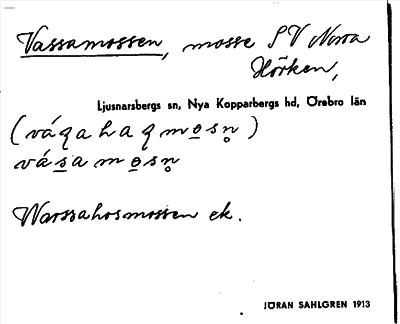 Vassamossen, mosse SV Norra
Hörken,
Ljusnarsbergs sn, Nya Kopparbergs hd, Örebro län
(váqahaqmo̲sn̥)
vás̲amo̲sn̥
Warssahosmossen ek.
JÖRAN SAHLGREN 1913